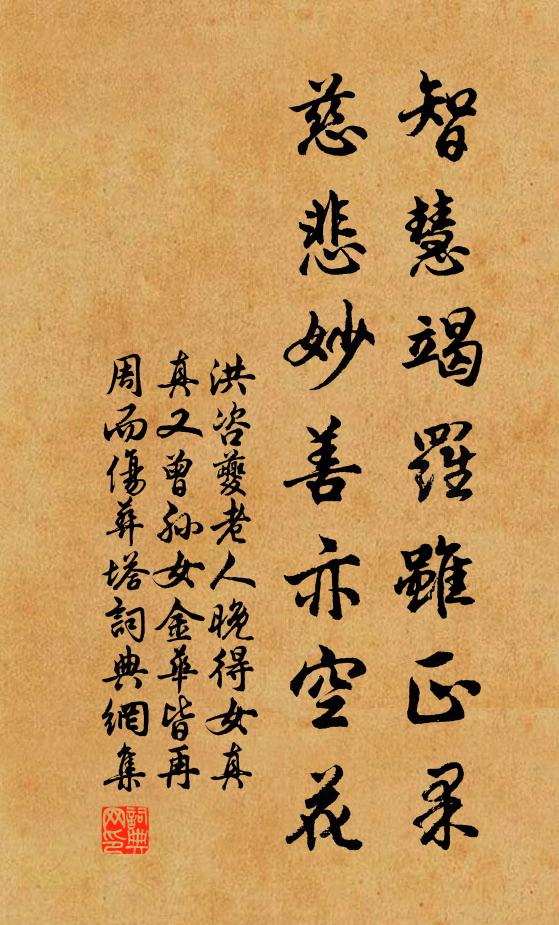 智慧竭羅雖正果
慈悲妙善亦空花
洪咨夔老人晚得女真
真又曾孫女金華皆再
周而傷葬塔詞典網集
詞典
网印